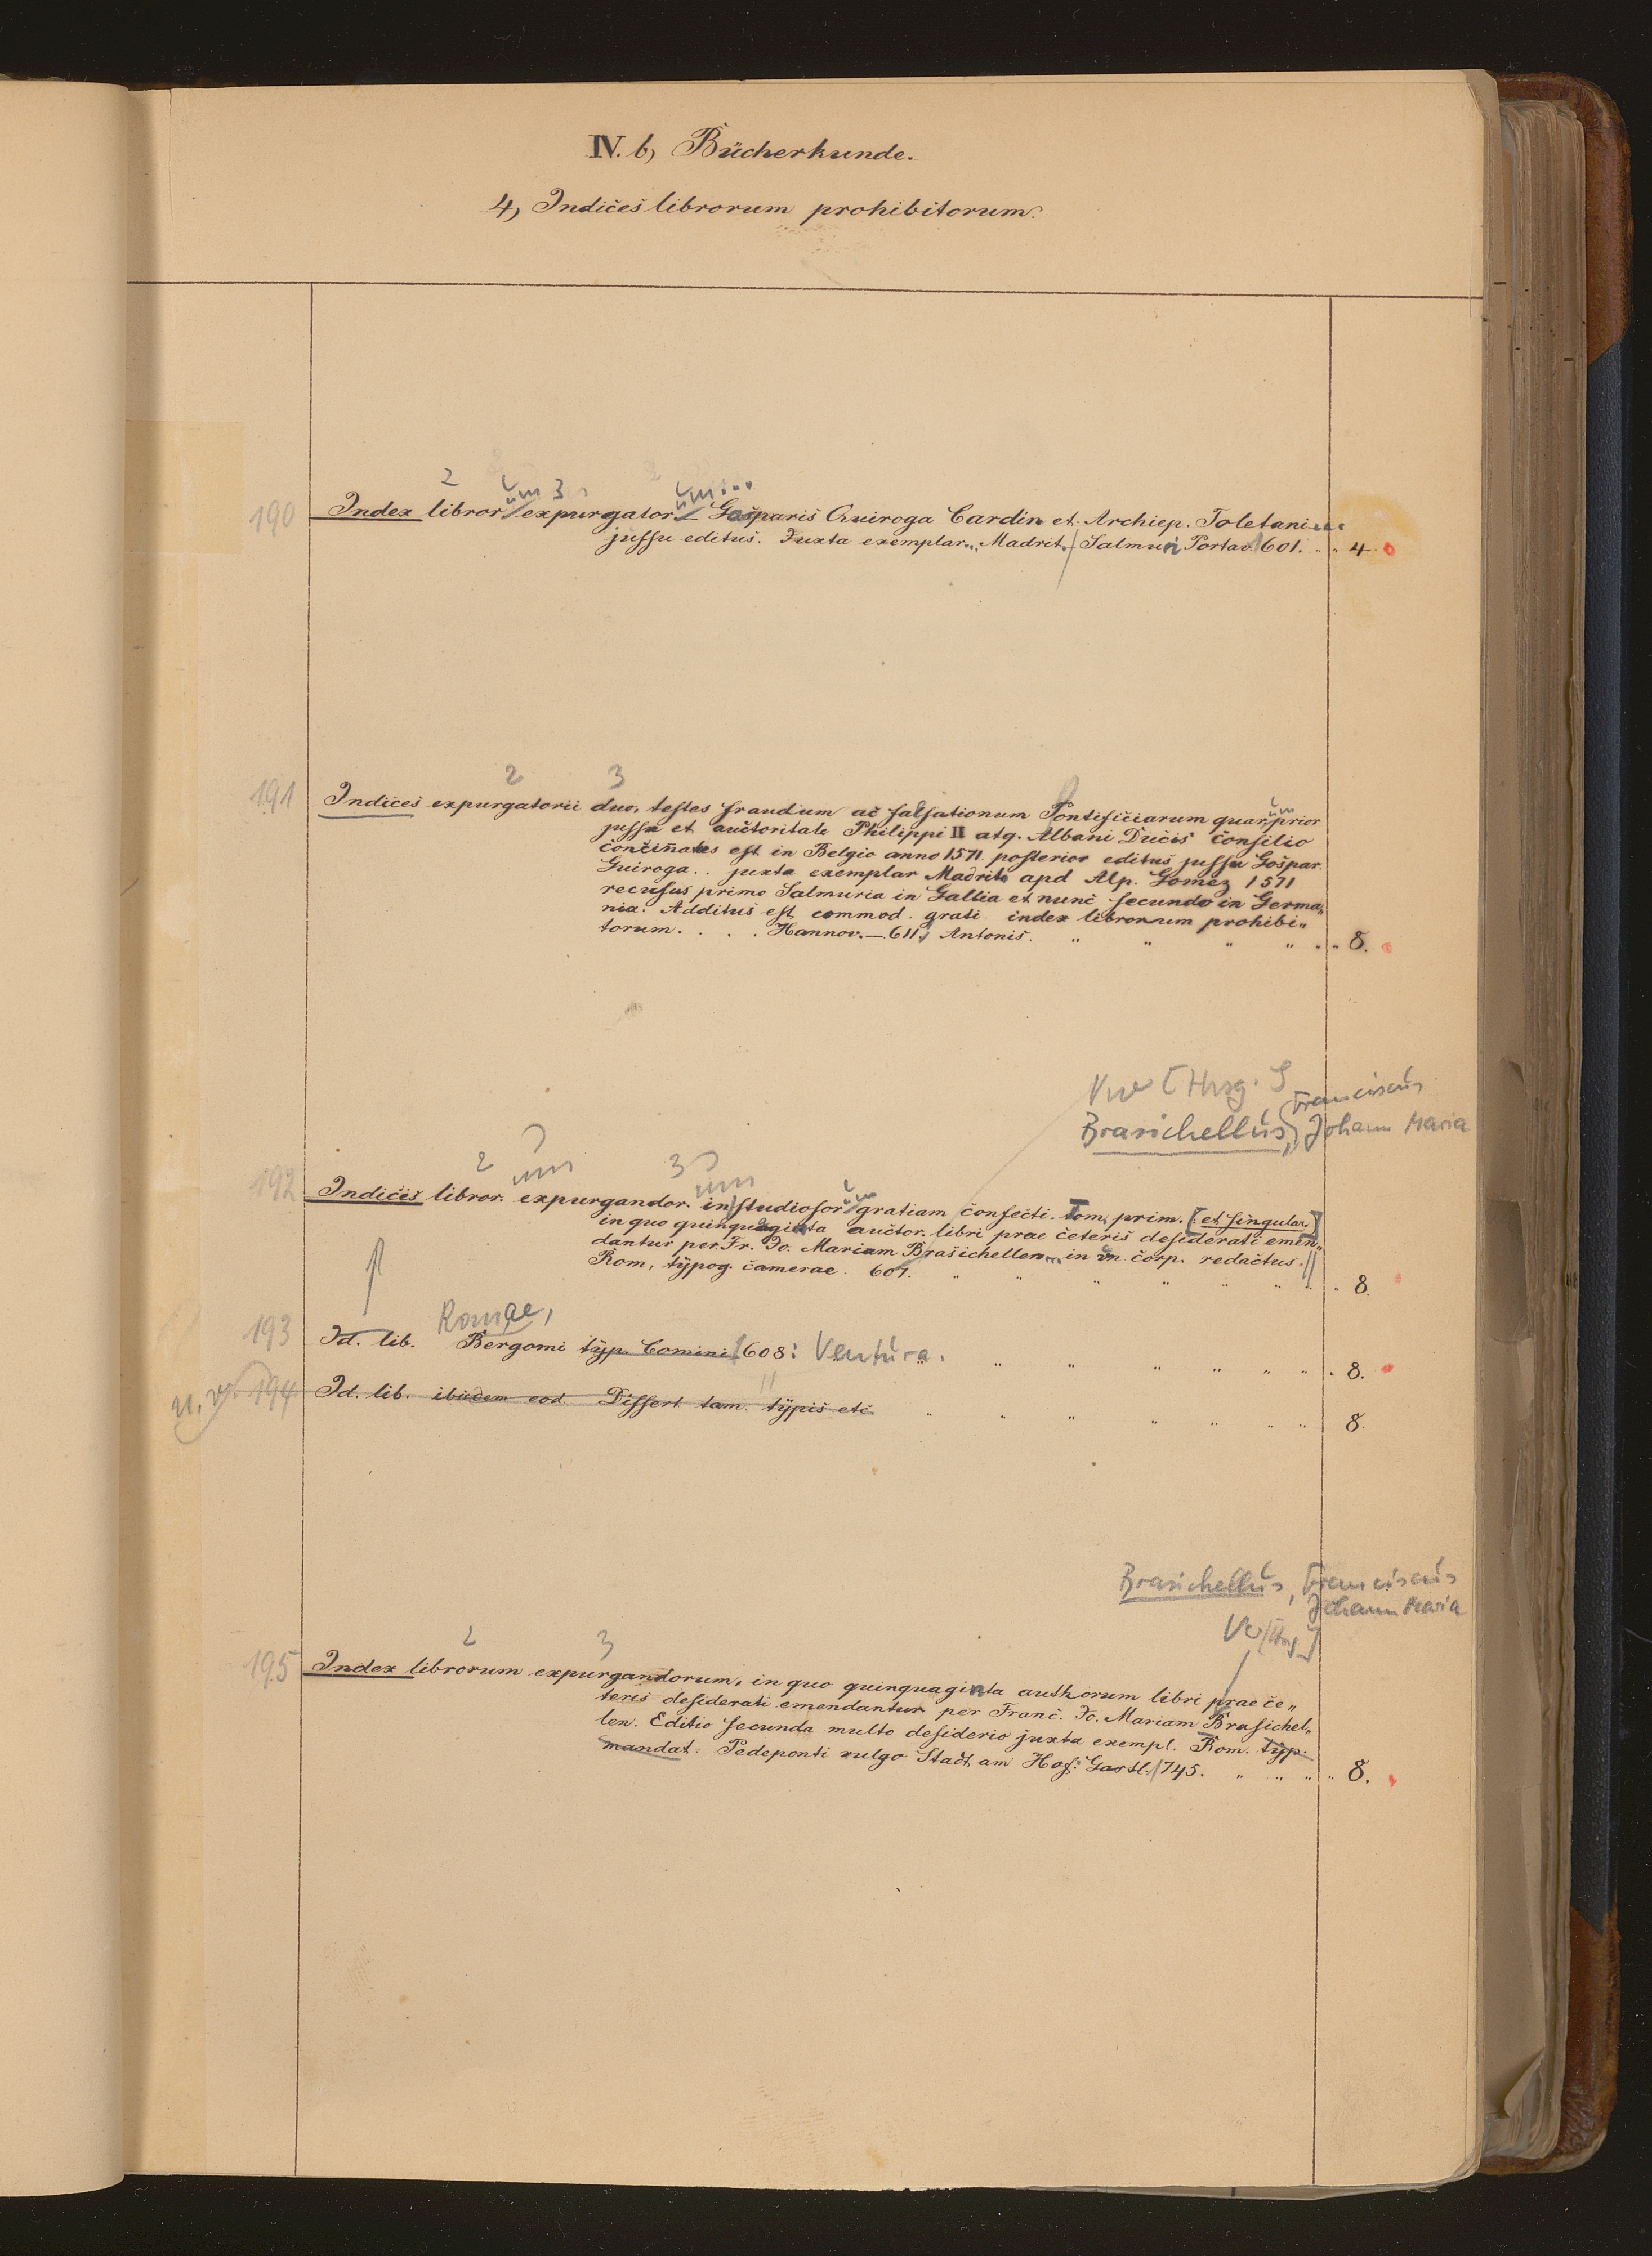 IV. b, Bücherkunde.
4, Indices librorum prohibitorum.
2 um 3 um...
190 Index libror. expurgator. Gasparis Quiroga Cardin. et. Archiep. Toletani...
jussu editus. Juxta exemplar... Madrit. Salmuri Portau. 1601. 4.
2 3
191 Indices expurgatorii duo, testes fraudum ac falsationum Pontificiarum quar. um prior
jussu et auctoritate Philippi II atq. Albani Ducis consilio
concinatus est in Belgio anno 1571 posterior editus jussu Gaspar.
Guiroga.. juxta exemplar Madriti apd Alp. Gomez 1571
recusus primo Salmuria in Gallia et nunc secundo in Germa„
nia. Additus est commod. grati index librorum prohibi„
torum. . . . Hannov. — 611, Antonis. 8.
Vw [Hrsg.]
Brasichellus, Franciscus
Johann Maria
2 um 3 um um
192 Indices libror. expurgandor. in studiosor. gratiam confecti. Tom. prim. [et singular.]
in quo quinquaginta auctor. libri prae ceteris desiderati emen„
dantur per Fr. Jo. Mariam Brasichellen... in un. corp. redactus.
Rom, typog. camerae. 607. 8.
Romae,
193 Id. lib. Bergomi typ. Comini 1608: Ventura. 8.
194 Id. lib. ibidem eod. Differt tam. typis etc. 8.
Brasichellus, Franciscus
Johann Maria
Vw [Hrsg.]
2 3
195 Index librorum expurgandorum, in quo quinquaginta authorum libri prae ce„
teris desiderati emendantur per Franc. Jo. Mariam Brasichel„
len. Editio secunda multo desiderio juxta exempl. Rom. typ.
mandat. Pedeponti vulgo Stadt am Hof: Gastl. 1745. 8.